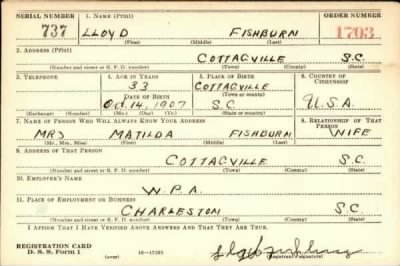 SERIAL NUMBER 1. NAME (Print) ORDER NUMBER
737 LLOYD FISHBURN 1703
(First) (Middle) (Last)
2. ADDRESS (Print)
COTTAGVILLE S.C.
(Number and street or R. F. D. number) (Town) (County) (State)
3. TELEPHONE 4. AGE IN YEARS 5. PLACE OF BIRTH 6. COUNTRY OF CITIZENSHIP
33 COTTAGVILLE
DATE OF BIRTH (Town or county)
Oct. 14, 1907 S.C U.S.A.
(Exchange) (Number) (Mo.) (Day) (Yr.) (State or country)
7. NAME OF PERSON WHO WILL ALWAYS KNOW YOUR ADDRESS 8. RELATIONSHIP OF THAT PERSON
MRS MATILDA FISHBURN WIFE
(Mr., Mrs., Miss) (First) (Middle) (Last)
9. ADDRESS OF THAT PERSON
COTTAGVILLE S.C.
(Number and street or R. F. D. number) (Town) (County) (State)
10. EMPLOYER'S NAME
W.P.A.
11. PLACE OF EMPLOYMENT OR BUSINESS
CHARLESTON S.C
(Number and street or R. F. D. number) (Town) (County) (State)
I AFFIRM THAT I HAVE VERIFIED ABOVE ANSWERS AND THAT THEY ARE TRUE.
REGISTRATION CARD
D. S. S. Form 1 (over) (Registrant's signature)